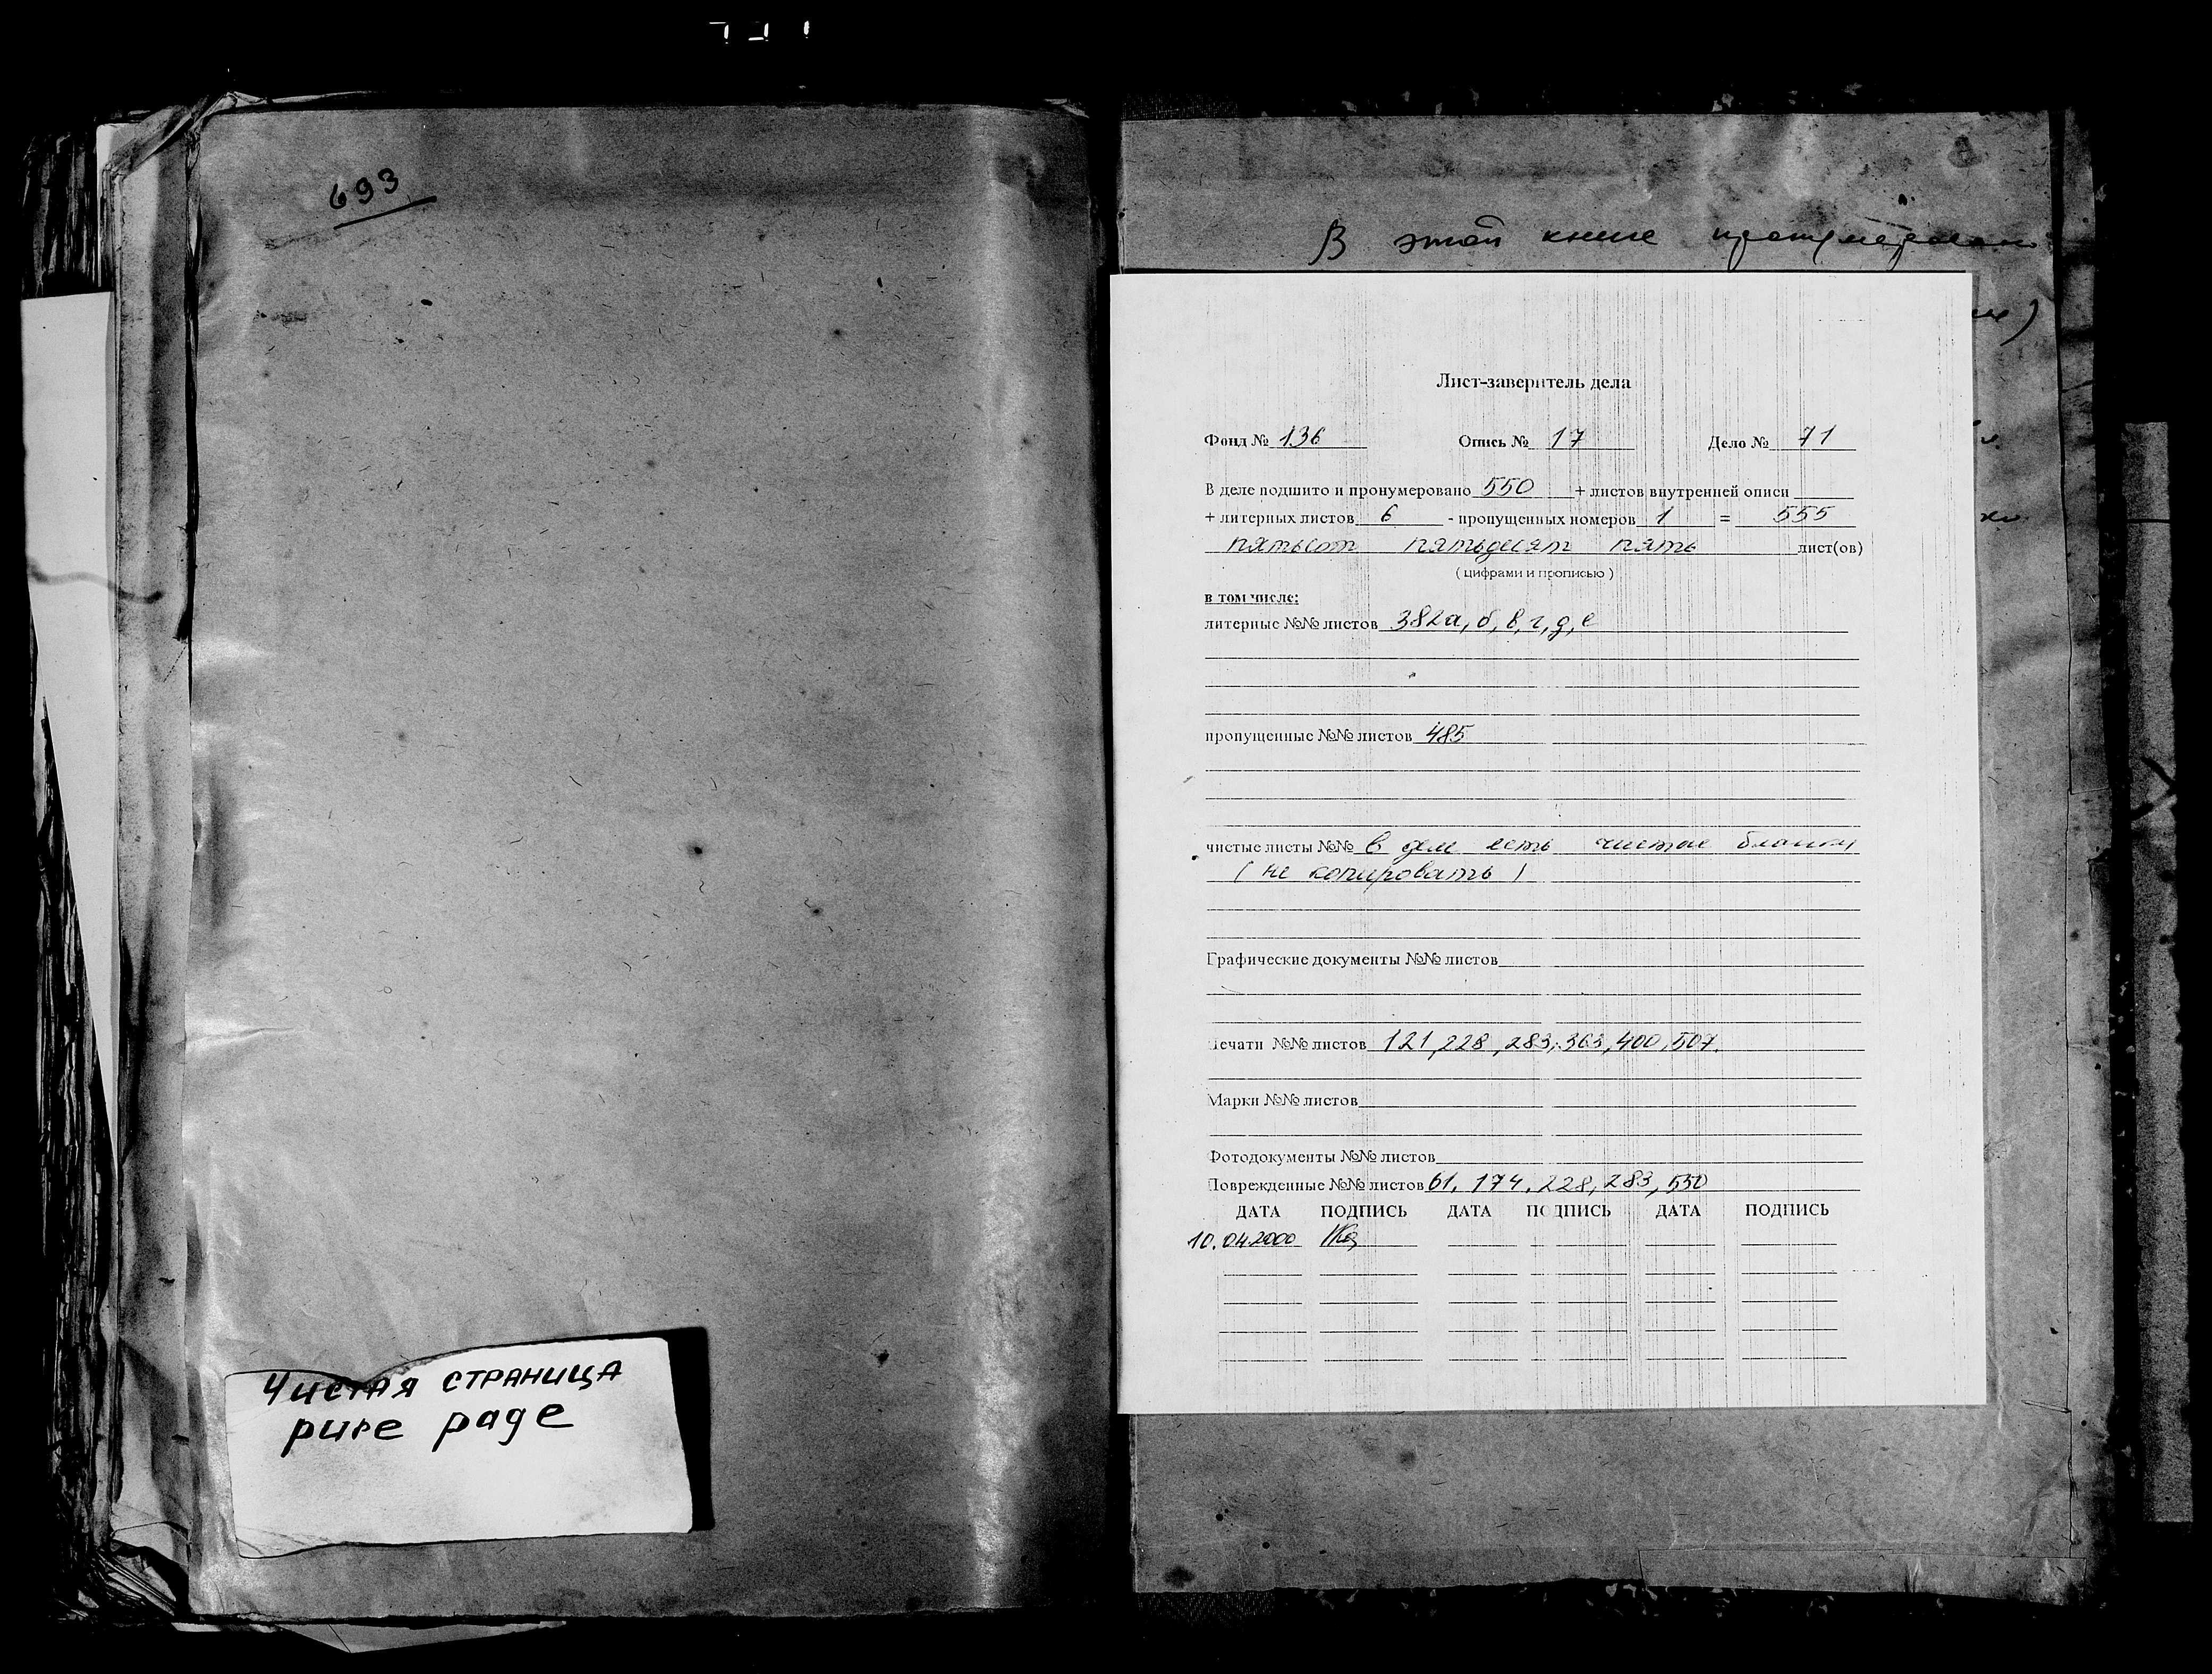 693
Чистая страница
pure page
В этой книге пронумеровано
Лист-заверитель дела
Фонд № 136 Опись № 17 Дело № 71
В деле подшито и пронумеровано 550 + листов внутренней описи
+ литерных листов 6 - пропущенных номеров 1 = 555
пятьсот пятьдесят пять лист(ов)
( цифрами и прописью )
в том числе:
литерные №№ листов 382а, б, в, г, д, е
пропущенные №№ листов 485
чистые листы №№ в деле есть чистые бланки
( не копировать )
Графические документы №№ листов
Печати №№ листов 121, 228, 283, 363, 400, 507.
Марки №№ листов
Фотодокументы №№ листов
Поврежденные №№ листов 61, 174, 228, 283, 550
ДАТА ПОДПИСЬ ДАТА ПОДПИСЬ ДАТА ПОДПИСЬ
10.04.2000